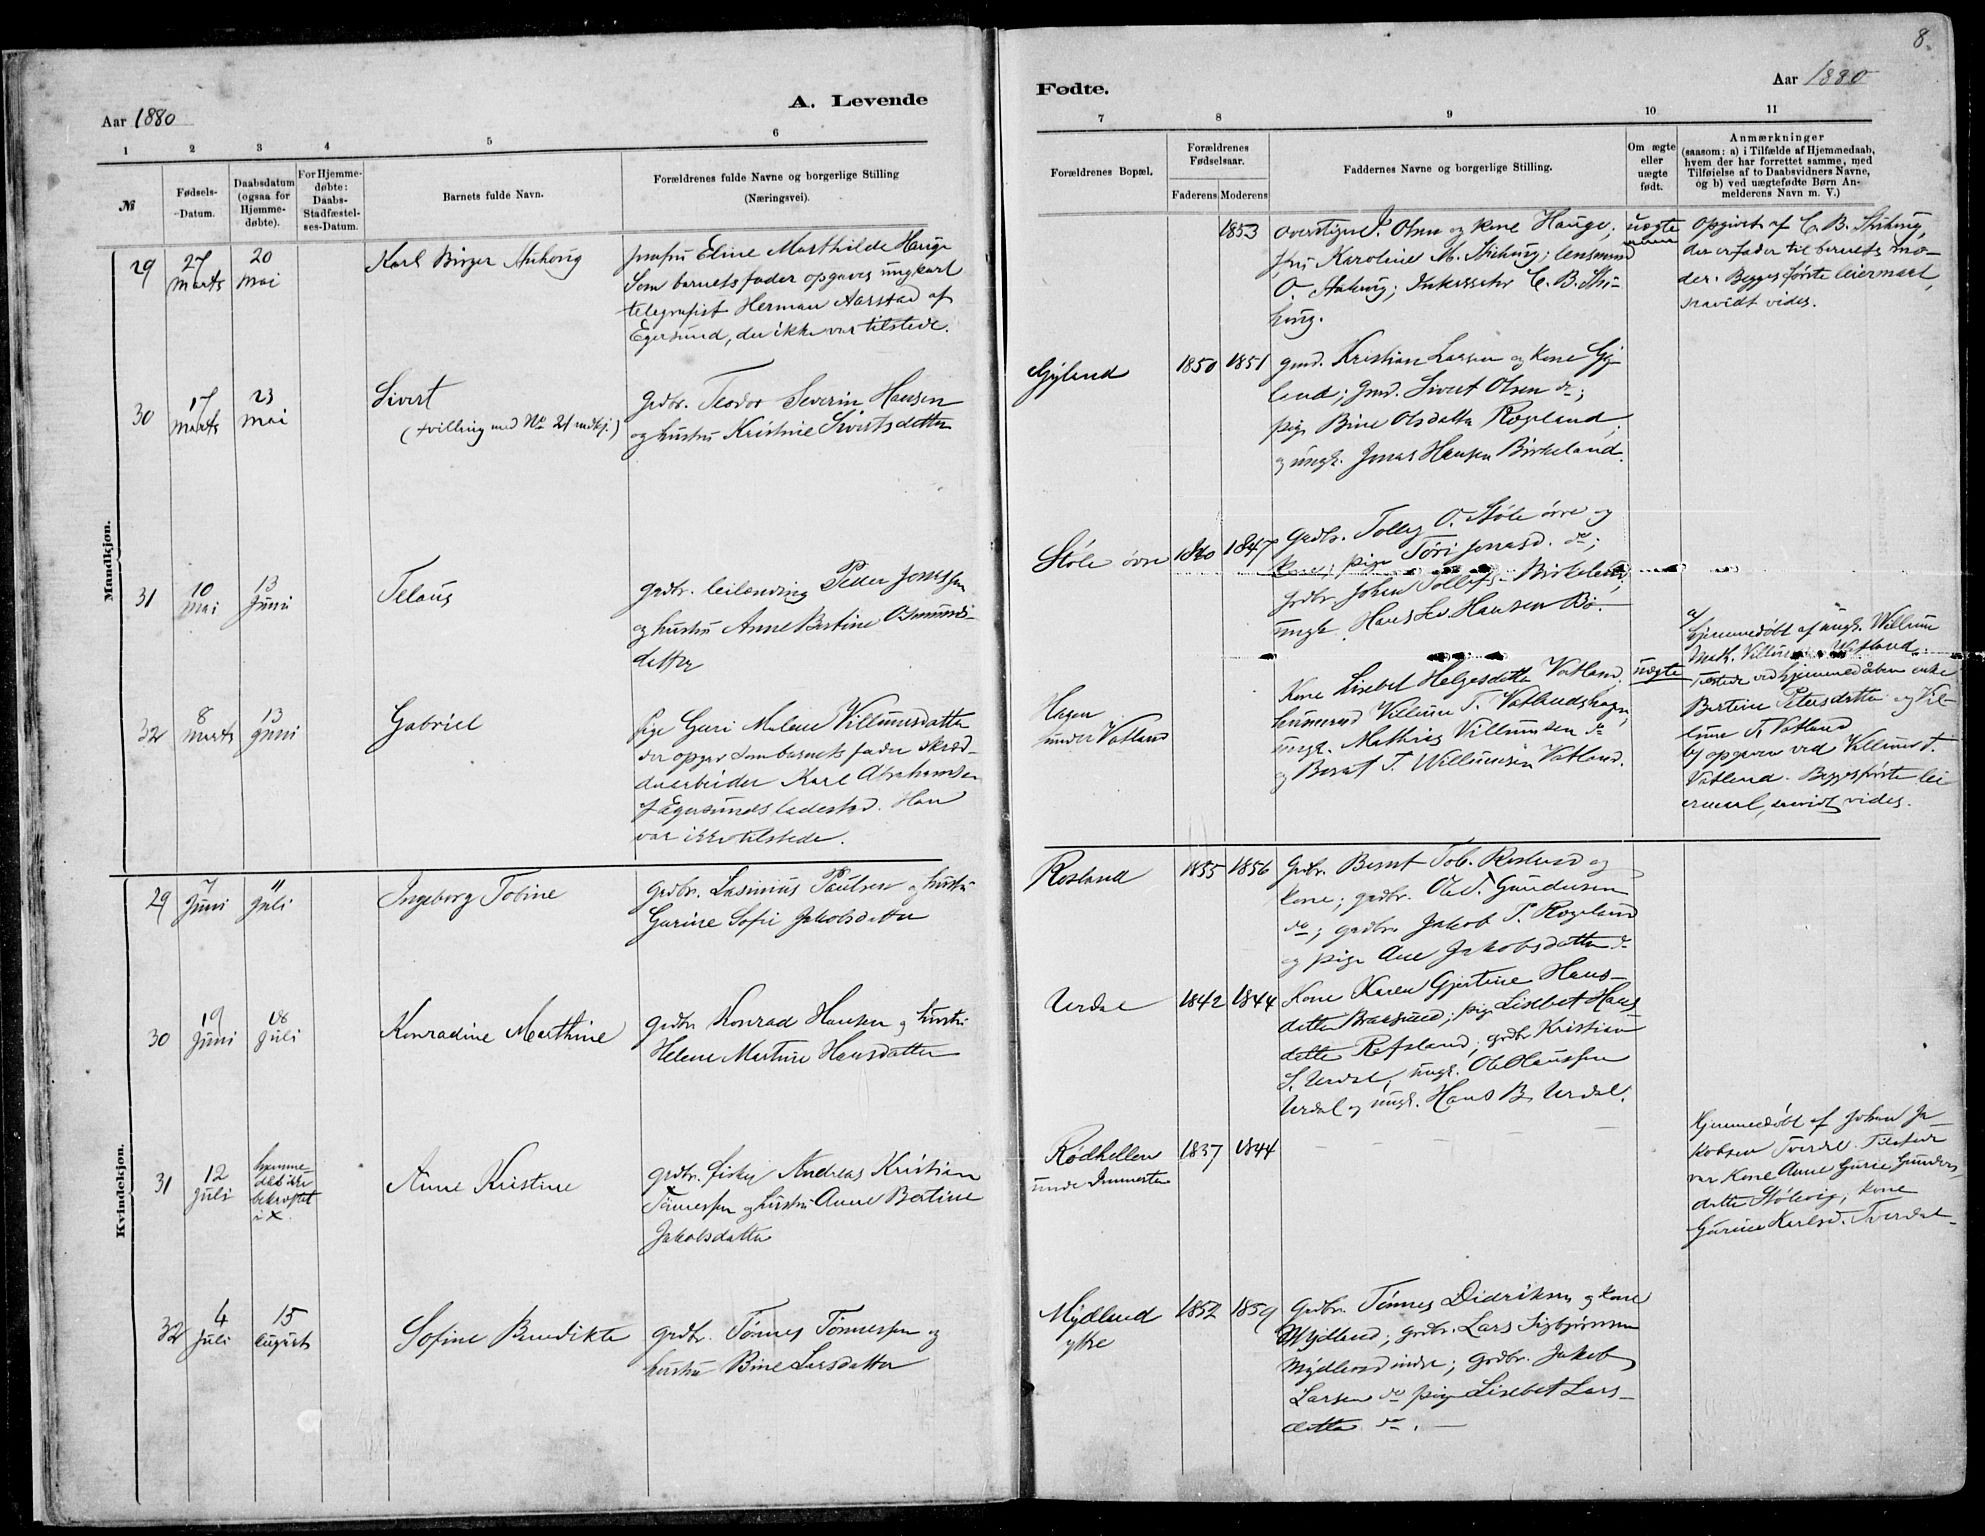 8.
Aar 1880
A. Levende
Fødte.
Aar 1880
1 2 3 4 5 6
7 8 9 10 11
№
Fødsels-
-Datum.
Daabsdatum
(ogsaa for
Hjemme-
døbte).
For Hjemme-
døbte:
Daabs-
Stadfæstel-
ses-Datum.
Barnets fulde Navn.
Forældrenes fulde Navne og borgerlige Stilling
(Næringsvei).
Forældrenes Bopæl.
Forældrenes
Fødselsaar.
Faderens Moderens
Faddernes Navne og borgerlige Stilling.
Om ægte
eller
uægte
født.
Anmærkninger
(saasom: a) i Tilfælde af Hjemmedaab,
hvem der har forrettet samme, med
Tilføielse af to Daabsvidners Navne,
og b) ved uægtefødte Børn An-
melderens Navn m. V.)
Mandkjøn.
29
27
Marts
20
Mai
Karl Birger
Eline Marthilde Hauge
Som barnets fader opgaves ungkarl
telegrafist Herman Aarstad af
Egersund, der ikke var tilstede.
1853
Olsen og kone Hauge;
Fru Karoline M. lensmand
C. B.
uægte
Opgivet af C. B.
der er fader til barnets mo-
der. Begges første leiermaal,
saavidt vides.
30
17
Marts
23
Mai
Sivert
(tvilling med No 21 mdkj.)
Grdbr. Teodor Severin Hansen
og hustru Kristine Sivertsdatter
Gyland
1850 1851
gmd. Kristian Larsen og kone Gy-
land; Gmd. Sivert Olsen do;
pige Bine Olsdatter Rægeland
og ungk. Jonas Hansen Birkeland.
31
10
Mai
13
Juni
Telaus
grdbr. leilænding Peder Jonassen
og hustru Anne Bertine Osmunds-
datter
Støle øvre
1840 1847
Grdbr. O. Støle øvre og
kone; pige Jonasd. do;
grdbr. Johan Birkeland;
ungk. Hans Hansen Bø.
32
8
Marts
13
Juni
Gabriel
Pige Guri Malene Villumsdatter
der opgav som barnets fader skræd-
derarbeider Karl Abrahamsen
af Egersunds ladested. Han
var ikke tilstede.
Hagen
under Vatland
Kone Lisebet Helgesdatter Vatland;
husmand Villum T. Vatlandshagen;
ungk. Mathias Villumsen do
og Bernt T. Villumsen Vatland.
uægte
a/
Hjemmedøbt af ungk. Villum
Math. Villumsen Vatland.
Tilstede ved hjemmedåben enke
Bertine Petersdatter og Vil-
lum T. Vatland
b/ opgiven ved Villum T.
Vatland. Begges første lei-
ermaal, saavidt vides.
Kvindekjøn.
29
7
Juni
11
Juli
Ingeborg Tobine
Grdbr. Lasinius Paulsen og hustru
Gurine Sofie Jakobsdatter
Rosland
1855 1856
Grdbr. Bernt Tob. Rosland og
kone; grdbr. Ole T. Gundersen
do; grdbr. Jakob T. Rægeland
og pige Ane Jakobsdatter do
30
19
Juni
18
Juli
Konradine Marthine
Grdbr Konrad Hansen og hustru
Helene Martine Hansdatter
Urdal
1842 1844
Kone Karen Gjertine Hans-
datter pige Lisebet Hans-
datter Refsland; grdbr Kristian
S. Urdal, ungk. Ole Hanssen
Urdal og ungk. Hans B. Urdal.
31
12
Juli
hjemme-
døbt ikke
bekræftet
i X.
Anne Kristine
grdbr. fisker Andreas Kristian
Tønnessen og hustru Anne Bertine
Jakobsdatter
Rødhellen
under
1837 1844
Hjemmedøbt af Johan Ja-
kobsen Tverdal. Tilstede
var kone Anne Gurie Gunders-
datter Stølevig, kone
Gurine Karlsd. Tverdal.
32
4
Juli
15
August
Sofine Benedikte
grdbr. Tønnes Tønnessen og
hustru Bine Larsdatter
Mydland
ytre
1852 1859
Grdbr. Tønnes Didriksen og kone
Mydland; grdbr. Lars Sigbjørnsen
Mydland indre; grdbr. Jakob
Larsen do pige Lisebet Lars-
datter do. —